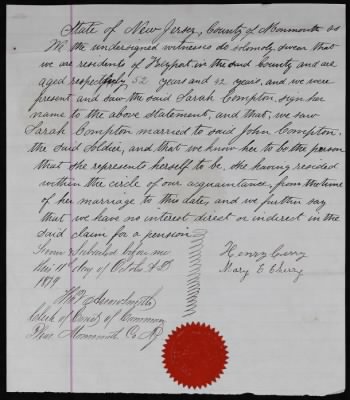 State of New Jersey, County of Monmouth ss
We the undersigned witnesses do solemnly swear that
we are residents of Keyport in the said County and are
aged respectfully 52 years and 42 years, and we were
present and saw the said Sarah Compton, sign her
name to the above statement, and that, we saw
Sarah Compton married to said John Compton,
the said Soldier, and that we know her to be the person
that she represents herself to be, she having resided
within the circle of our acquaintance, from the time
of her marriage to this date, and we further say
that we have no interest direct or indirect in the
said claim for a pension
Sworn & Subscribed before me
this 11th day of Octobr A.D.
1879
Henry
Mary E
Clerk of Courts of Common
Pleas Monmouth Co NJ